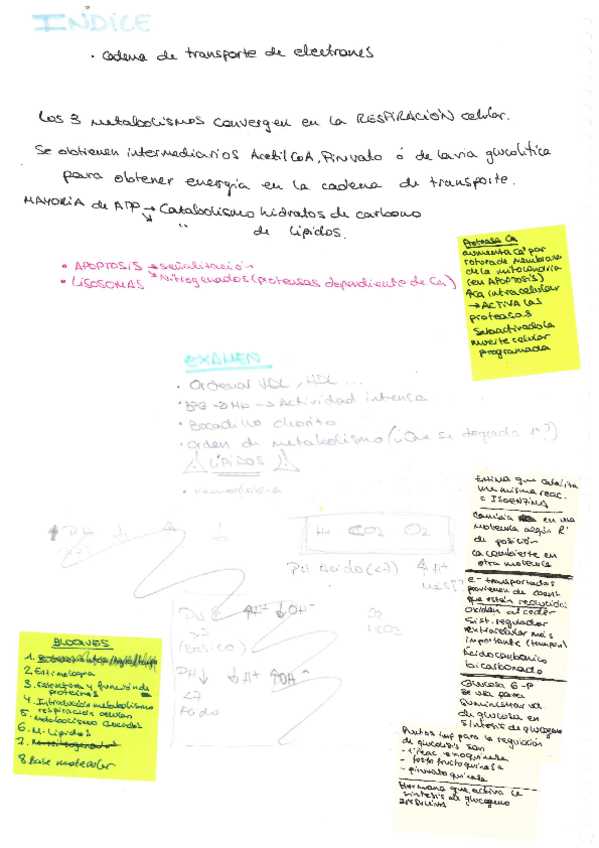 INDICE
• Cadena de transporte de electrones
Los 3 metabolismos convergen en la RESPIRACIÓN celular.
Se obtienen intermediarios Acetil CoA, Piruvato ó de la vía glucolítica
para obtener energía en la cadena de transporte.
MAYORIA de ATP → Catabolismo hidratos de carbono
" de lípidos.
• APOPTOSIS → señalización
• LISOSOMAS → Nitrogenados (proteasas dependiente de Ca)
Proteasa Ca
aumenta Ca por
rotura de membrana
de la mitocondria
(en APOPTOSIS)
↑Ca intracelular
→ ACTIVA las
proteasas
muerte celular
programada
EXAMEN
• Ordenar VLDL, HDL ...
→ Hb → Actividad intensa
• Bocadillo chorizo
• Orden de metabolismo (¿Que se degrada 1º?)
LÍPIDOS
• Hemoglobina
Enzima que cataliza
una misma reac.
ISOENZIMA
Cambia en una
molécula según
de posición
la convierte en
otra molécula
e- transportados
provienen de
que están
oxidan al ceder
Sist. regulador
extracelular más
importante (tampon)
Ácido carbónico
bicarbonado
Glucosa 6-P
Se usa para
suministrar
de glucosa en
síntesis de glucógeno
Puntos imp para la regulación
de glucólisis son
- fosfofructoquinasa
- piruvato quinasa
Hormona que activa la
síntesis de glucógeno
INSULINA
↑ PH ↓
H+ CO2 O2
PH Ácido (<7) ↑ H+
PH ↑ ↑H+ ↓OH-
>7
(básico)
O2
CO2
PH↓ ↓H+ ↑OH-
<7
Ácido
BLOQUES
1.
2. Enzimología
3. estructura y función de
proteínas
4. Introducción metabolismo
respiración celular
5. Metabolismo Glúcidos
6. M. Lípidos
7. M. nitrogenados
8. Base molecular